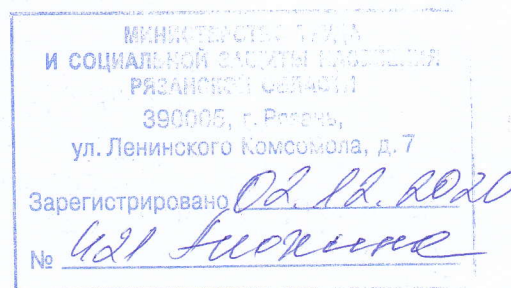 МИНИСТЕРСТВО ТРУДА
И СОЦИАЛЬНОЙ ЗАЩИТЫ НАСЕЛЕНИЯ
РЯЗАНСКОЙ ОБЛАСТИ
390005, г. Рязань,
ул. Ленинского Комсомола, д. 7
Зарегистрировано 02.12.2020
№ 421